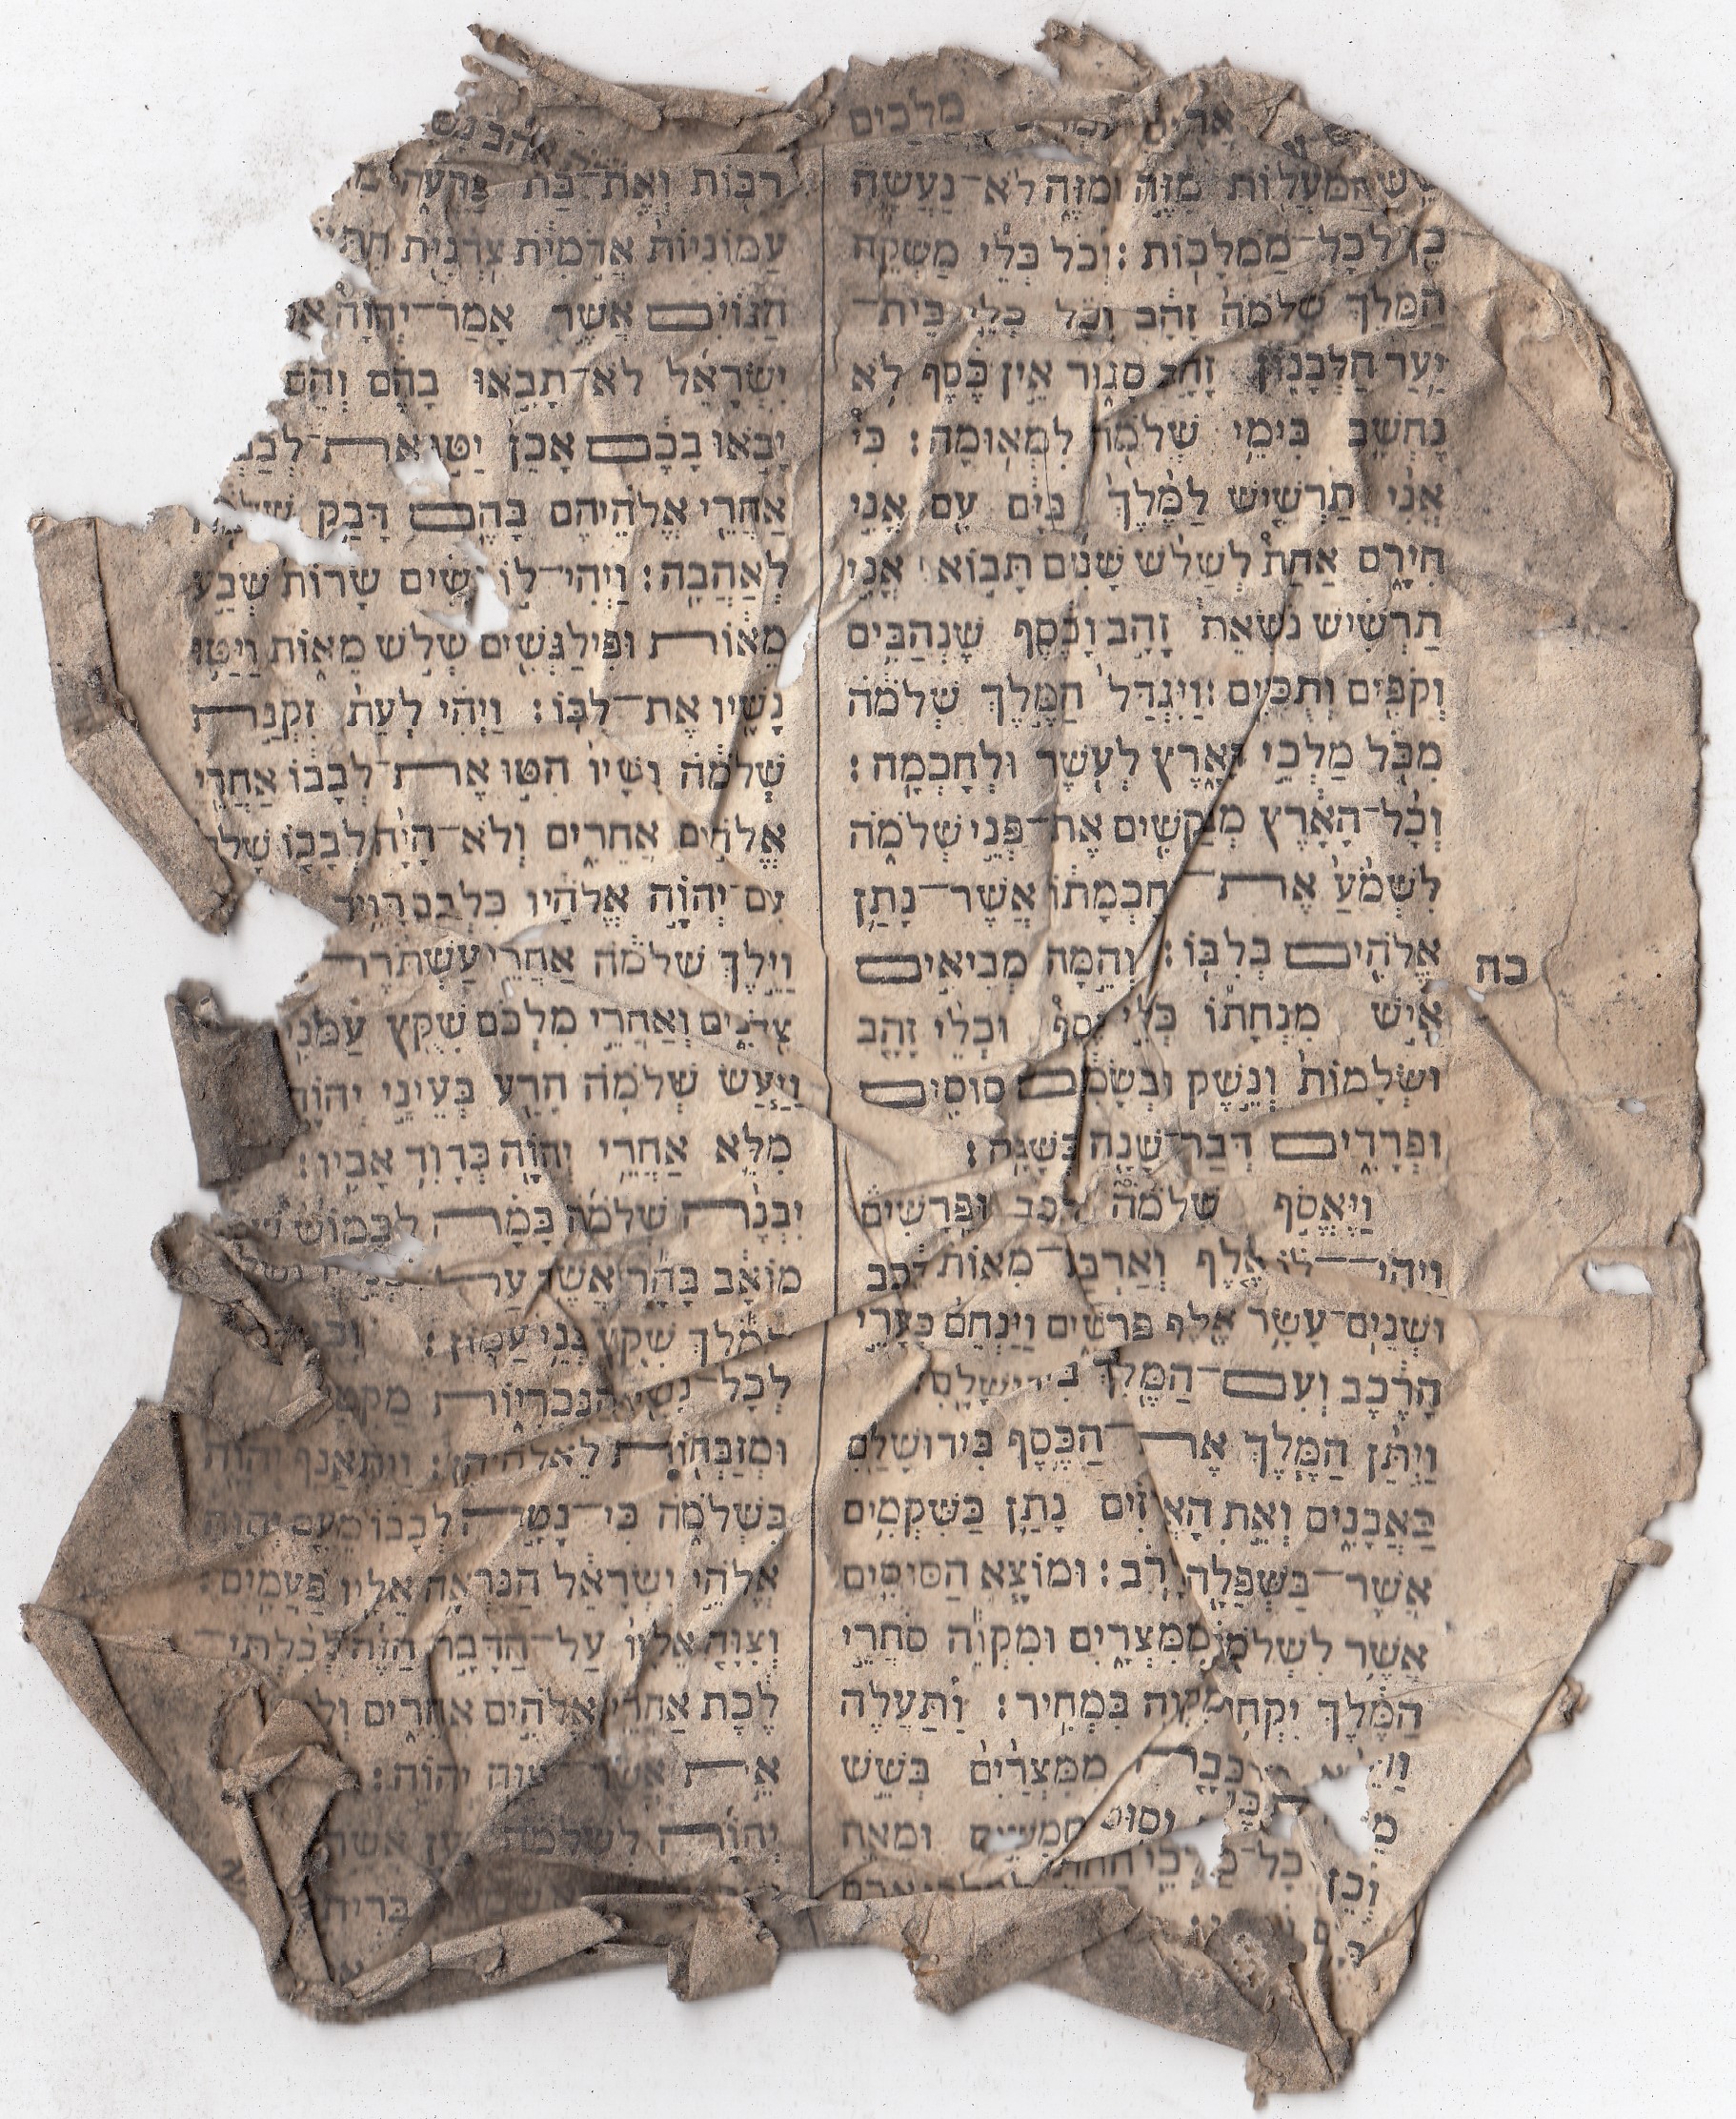 מלכים
המעלות מזה ומזה לא־נעשה
כן לכל־ממלכות: וכל כלי משקה
המלך שלמה זהב וכל כלי בית־
יער הלבנון זהב סגור אין כסף לא
נחשב בימי שלמה למאומה: כי
אני תרשיש למלך בים עם אני
חירם אחת לשלש שנים תבוא אני
תרשיש נשאת זהב וכסף שנהבים
וקפים ותכיים: ויגדל המלך שלמה
מכל מלכי הארץ לעשר ולחכמה:
וכל־הארץ מבקשים את־פני שלמה
לשמע את־חכמתו אשר־נתן
אלהים בלבו: והמה מביאים
כה
איש מנחתו כלי כסף וכלי זהב
ושלמות ונשק ובשמים סוסים
ופרדים דבר־שנה בשנה:
ויאסף שלמה רכב ופרשים
ויהי־לו אלף וארבע־מאות רכב
ושנים־עשר אלף פרשים וינחם בערי
הרכב ועם־המלך בירושלם:
ויתן המלך את־הכסף בירושלם
כאבנים ואת הארזים נתן כשקמים
אשר־בשפלה לרב: ומוצא הסוסים
אשר לשלמה ממצרים ומקוה סחרי
המלך יקחו מקוה במחיר: ותעלה
מרכבה ממצרים בשש
וסוס בחמשים ומאה
וכן כל־מלכי החתים
רבות ואת־בת פרעה
עמוניות אדמית צדנית
הגוים אשר אמר־יהוה
ישראל לא־תבאו בהם והם
יבאו בכם אכן יטו את־
אחרי אלהיהם בהם דבק שלמה
לאהבה: ויהי־לו נשים שרות שבע
מאות ופילגשים שלש מאות ויטו
נשיו את־לבו: ויהי לעת זקנת
שלמה נשיו הטו את־לבבו אחרי
אלהים אחרים ולא־היה לבבו שלם
עם־יהוה אלהיו כלבב דויד
וילך שלמה אחרי עשתרת
צדנים ואחרי מלכם שקץ עמנים
ויעש שלמה הרע בעיני יהוה
מלא אחרי יהוה כדוד אביו:
יבנה שלמה במה לכמוש
מואב בהר אשר על־
המלך שקץ בני עמון: וכן
לכל־נשיו הנכריות
ומזבחות לאלהיהן: ויתאנף יהוה
בשלמה כי־נטה לבבו מעם יהוה
אלהי ישראל הנראה אליו פעמים:
וצוה אליו על־הדבר הזה לבלתי־
לכת אחרי אלהים אחרים ולא
את אשר־צוה יהוה:
יהוה לשלמה יען אשר
בריתי